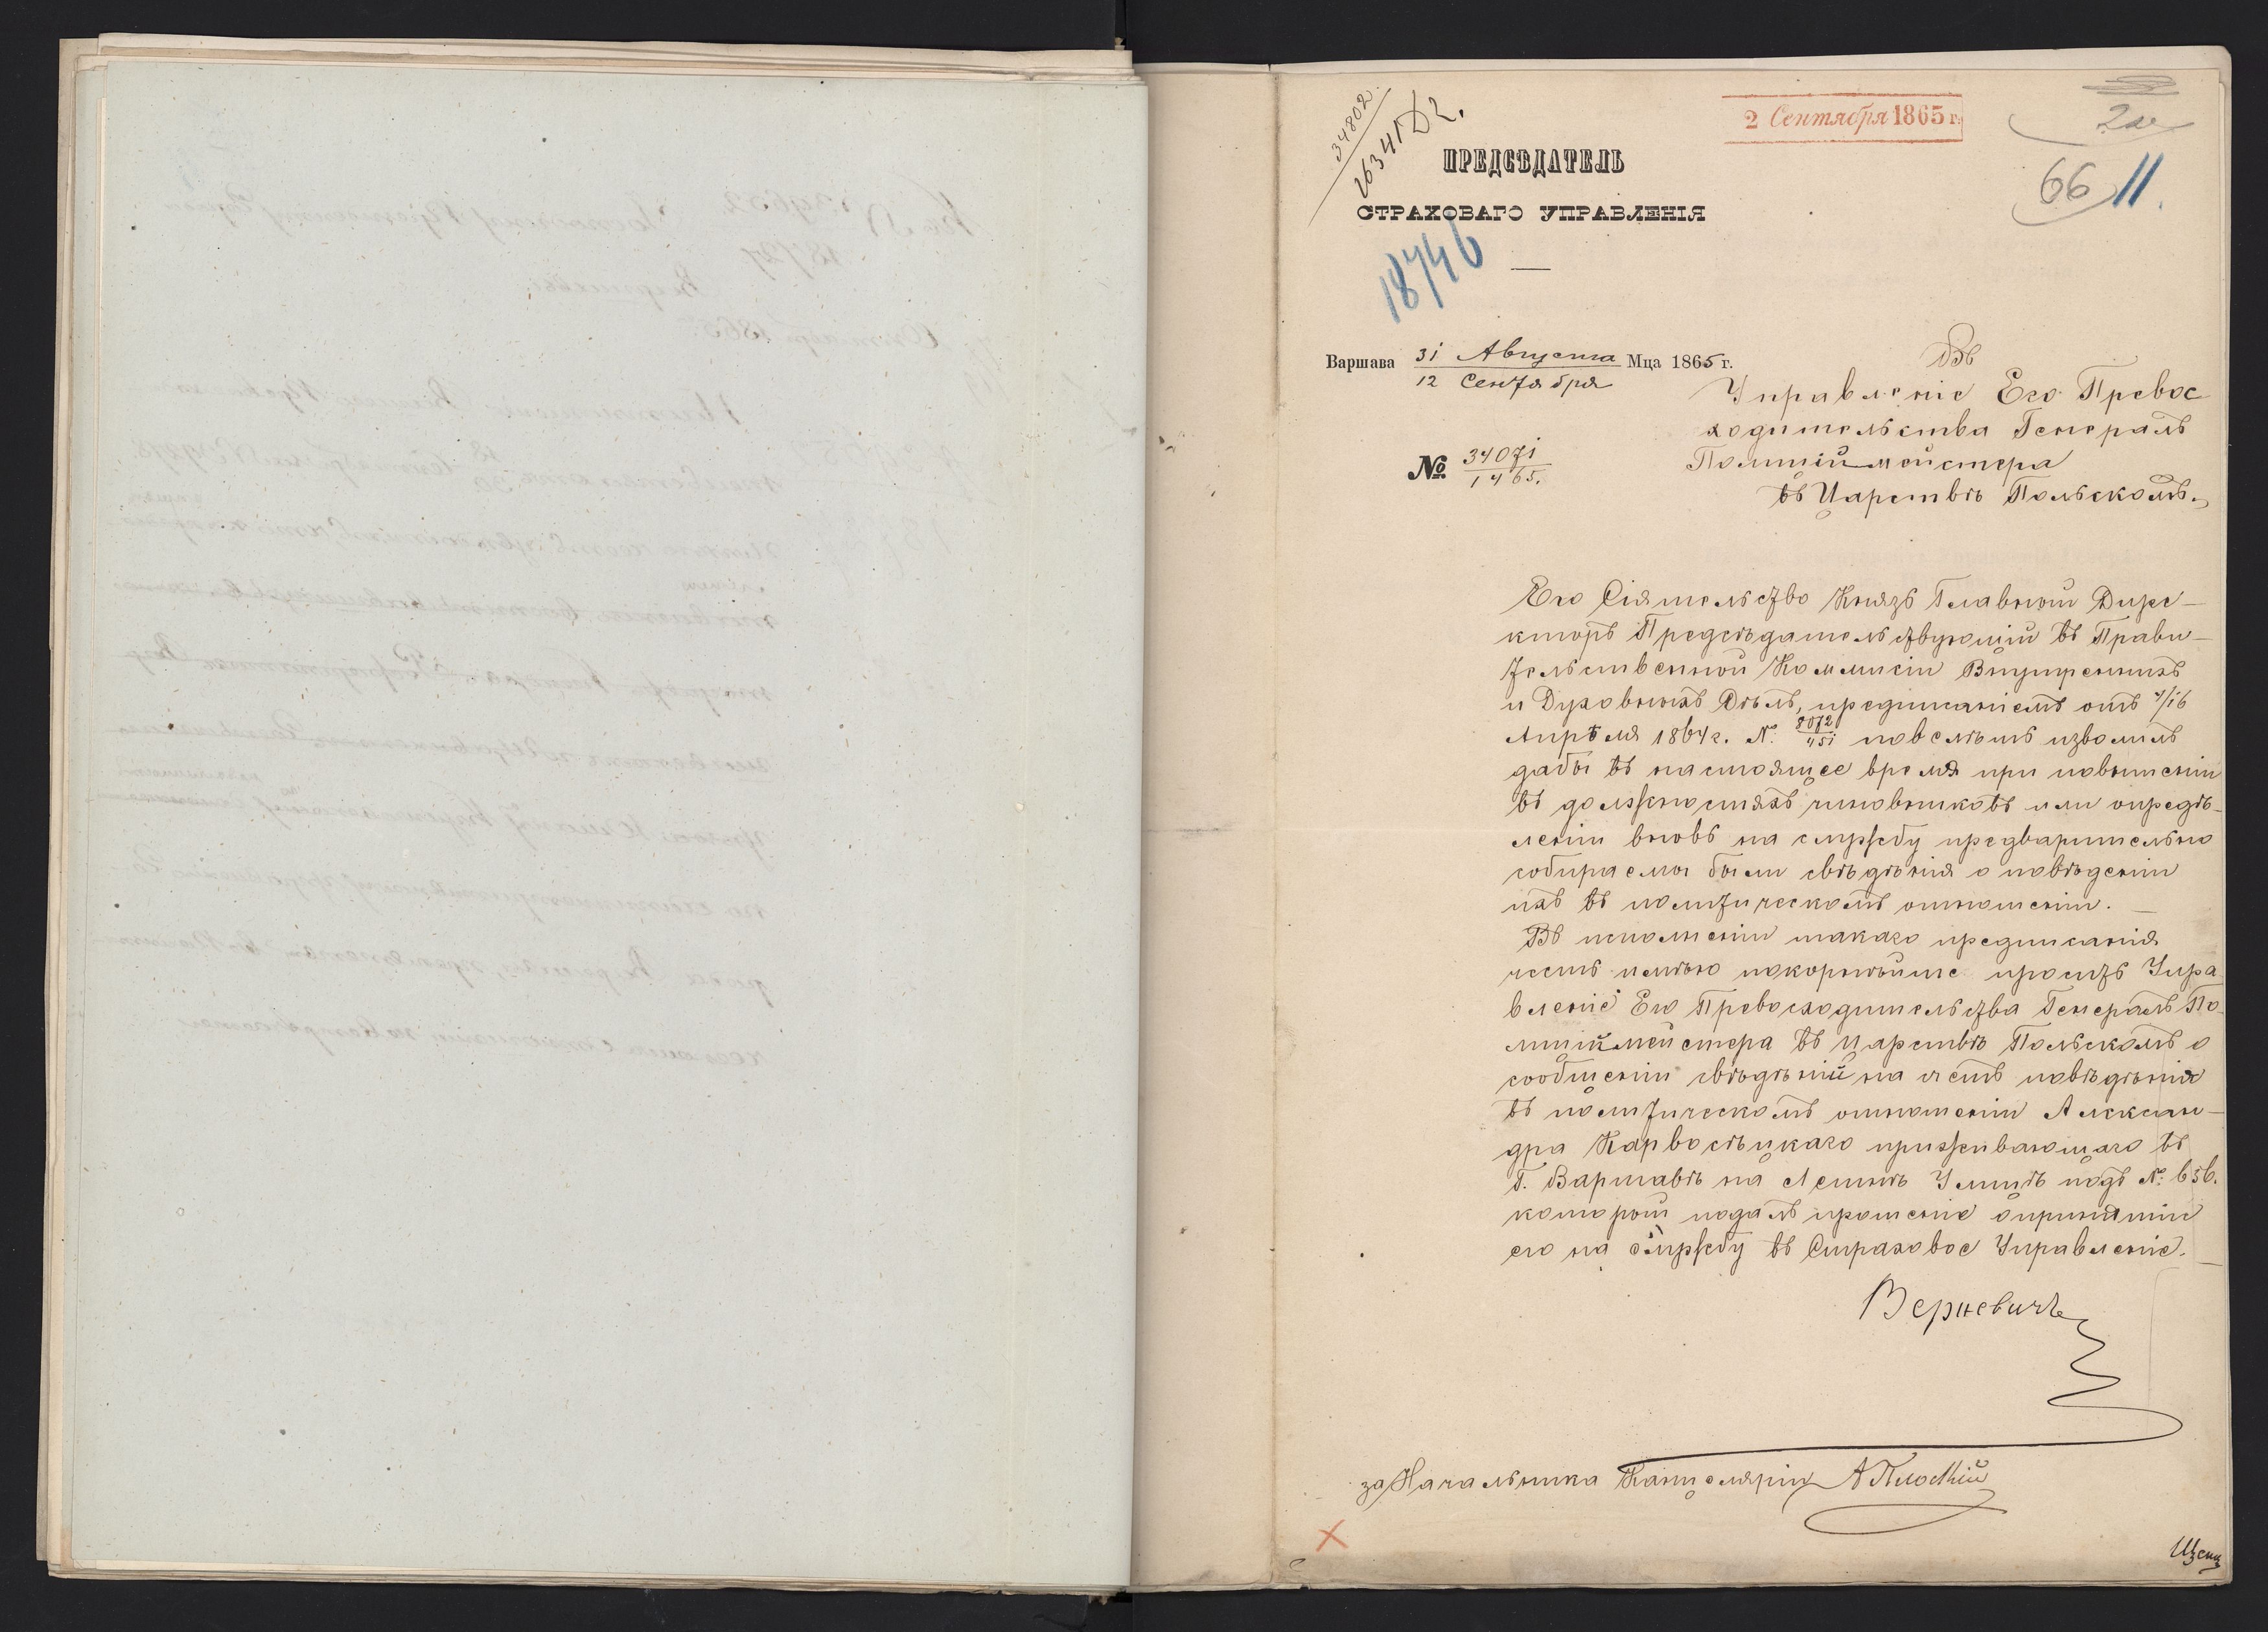 34802
26341 Д2.
2 Сентября 1865 г.
66 11.
ПРЕДСѢДАТЕЛЬ
СТРАХОВАГО УПРАВЛЕНІЯ
18746
Варшава 31 Августа Мца 1865 г.
12 Сентября
№ 34071
1465.
Въ
Управленіе Его Превос
ходительства Генералъ
Полиціймейстера
въ Царствѣ Польскомъ.
Его Сіятельство Князь Главный Дире-
кторъ Предсѣдательствующій въ Прави-
тельственной Коммисіи Внутреннихъ
и Духовныхъ Дѣлъ, предписаніемъ отъ 4/16
Апрѣля 1864 г. № 8072/451 повелѣть изволилъ
дабы въ настоящее время при повышеніи
въ должностяхъ чиновниковъ или опредѣ-
леніи вновь на службу предварительно
собираемы были свѣдѣнія о повѣденіи
ихъ въ политическомъ отношеніи. —
Въ исполненіи такаго предписанія
честь имѣю покорнѣйше просить Упра
вленіе Его Превосходительства Генералъ По-
лиціймейстера въ Царствѣ Польскомъ о
сообщеніи свѣдѣній на счетъ повѣдѣнія
въ политическомъ отношеніи Алексан-
дра Карвосѣцкаго проживающаго въ
Г. Варшавѣ на Лешнѣ Улицѣ подъ № 656.
который подалъ прошеніе опринятіи
его на службу въ Страховое Управленіе. —
Верневичъ
за Начальника Канцеляріи